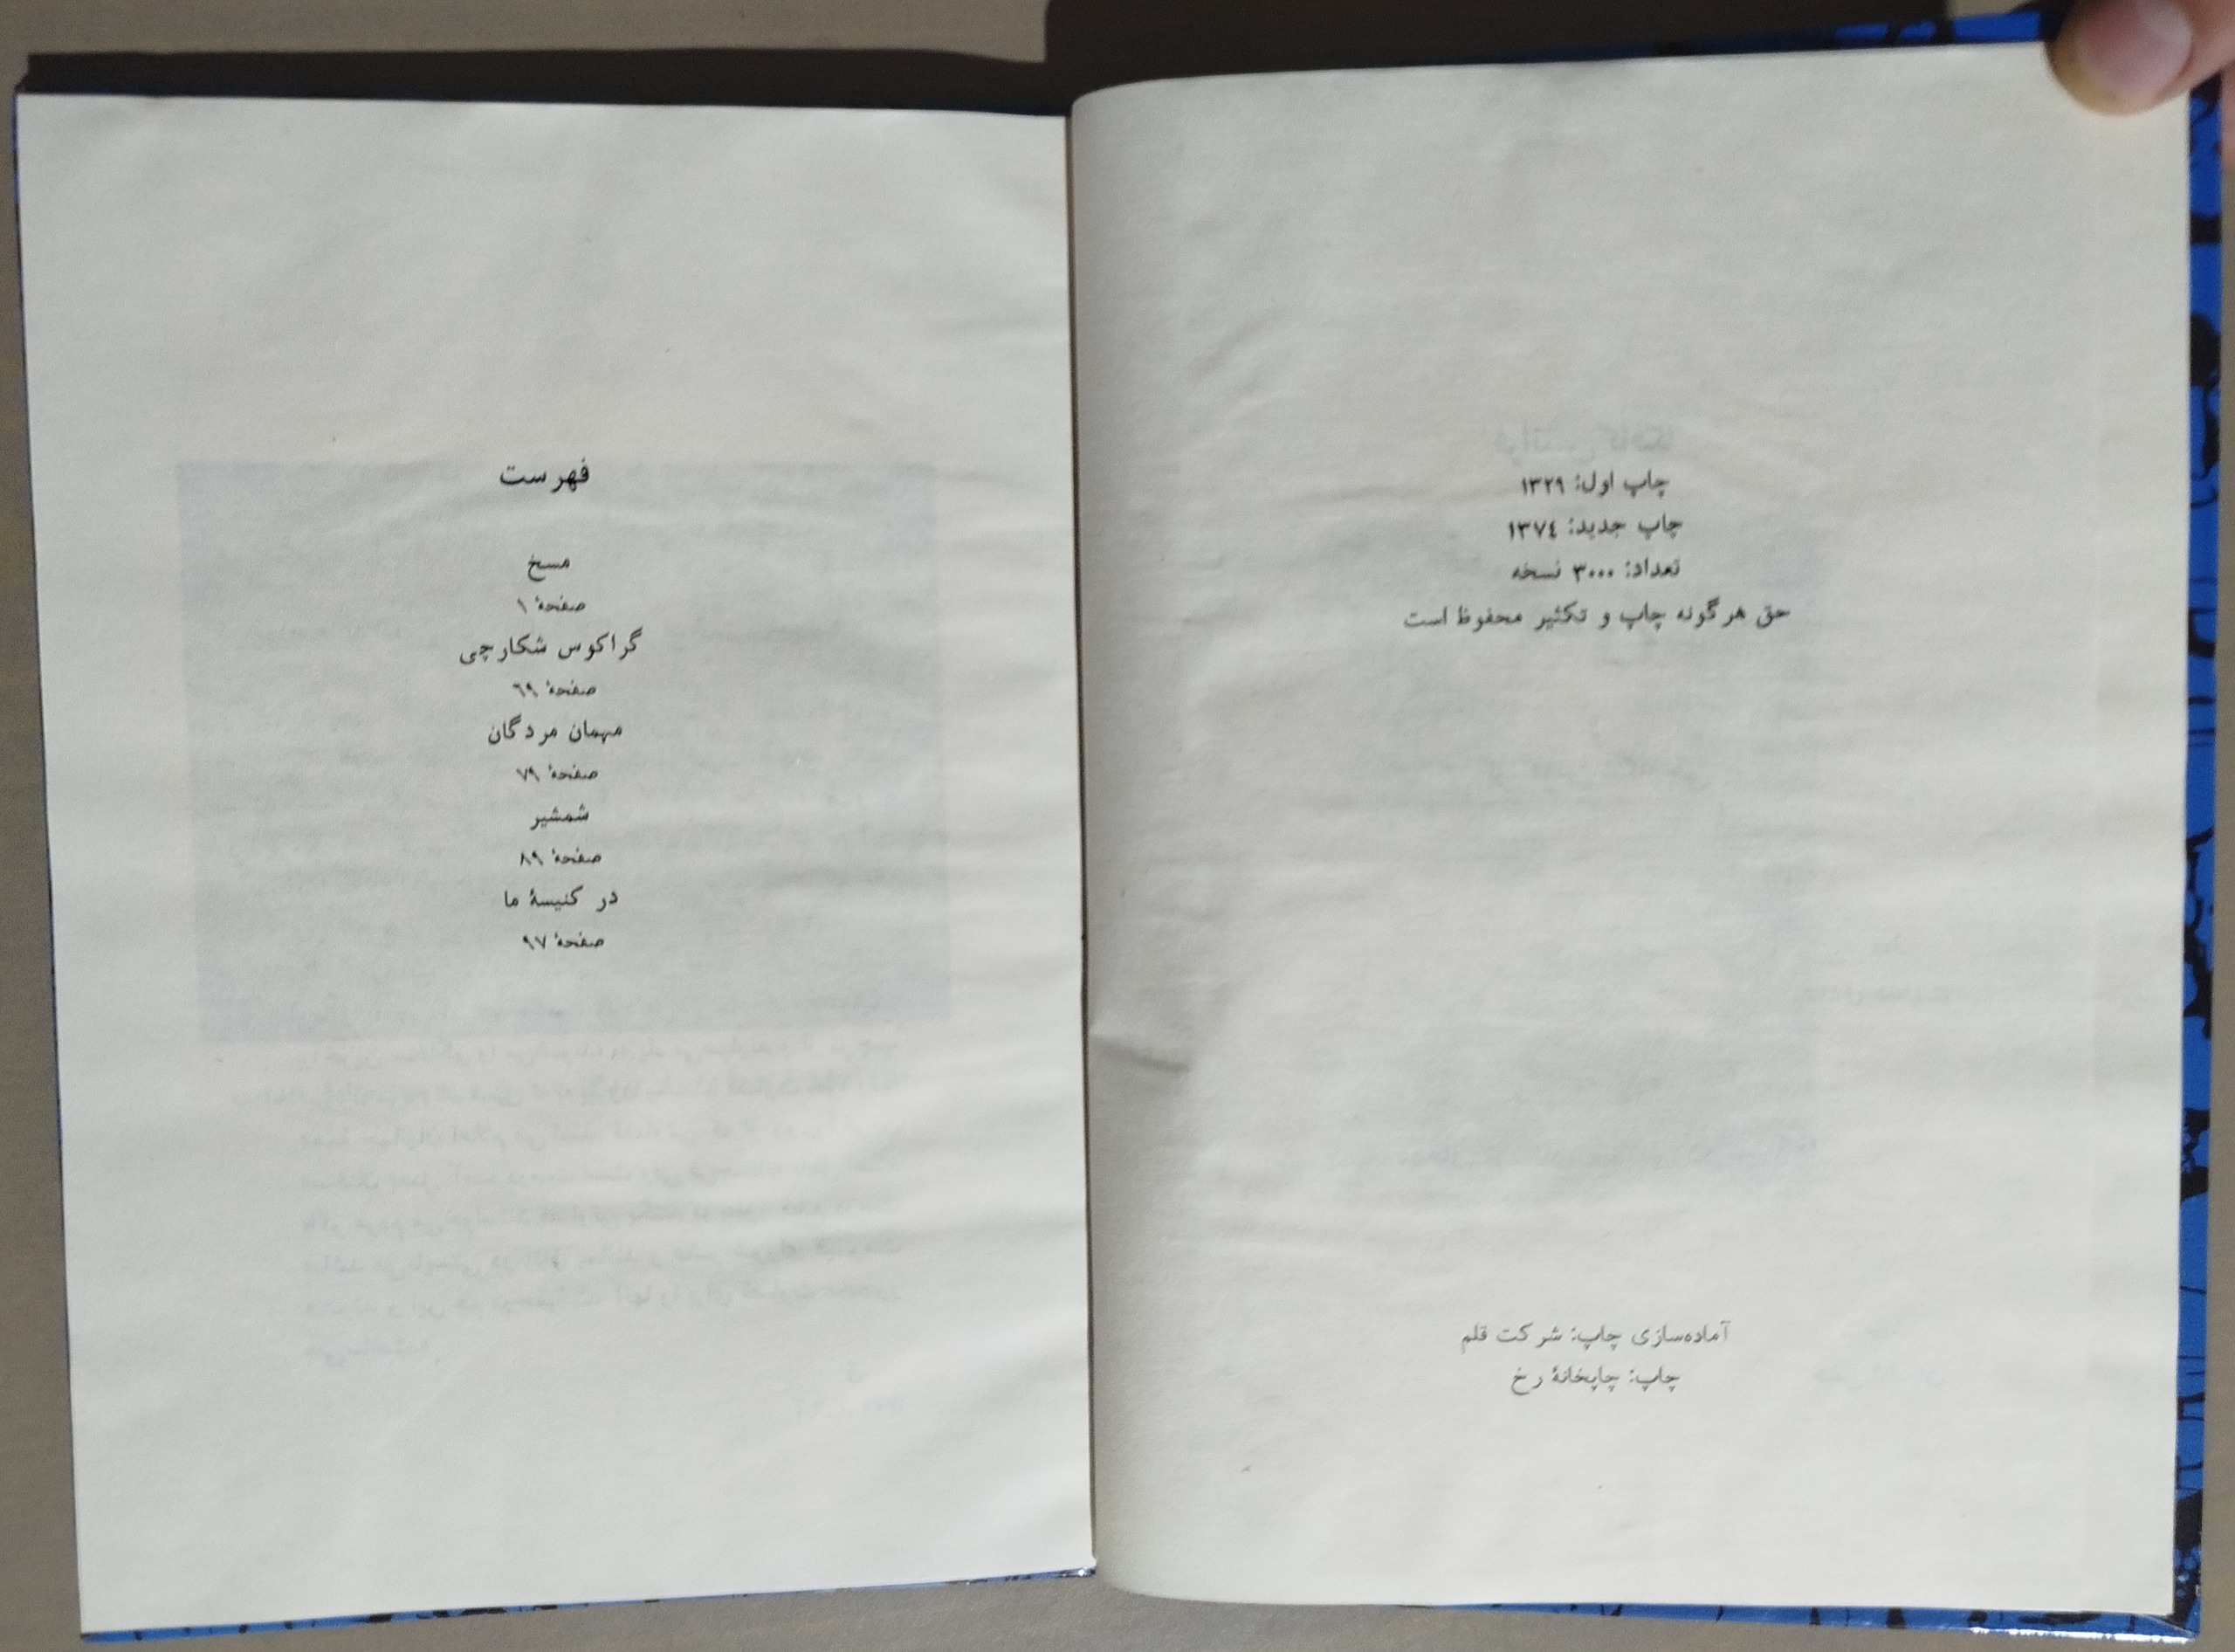 چاپ اول: ۱۳۲۹
چاپ جدید: ۱۳۷٤
تعداد: ۳۰۰۰ نسخه
حق هرگونه چاپ و تکثیر محفوظ است
آماده‌سازی چاپ: شرکت قلم
چاپ: چاپخانهٔ رخ
فهرست
مسخ
صفحهٔ ۱
گراکوس شکارچی
صفحهٔ ٦۹
مهمان مردگان
صفحهٔ ۷۹
شمشیر
صفحهٔ ۸۹
در کنیسهٔ ما
صفحهٔ ۹۷